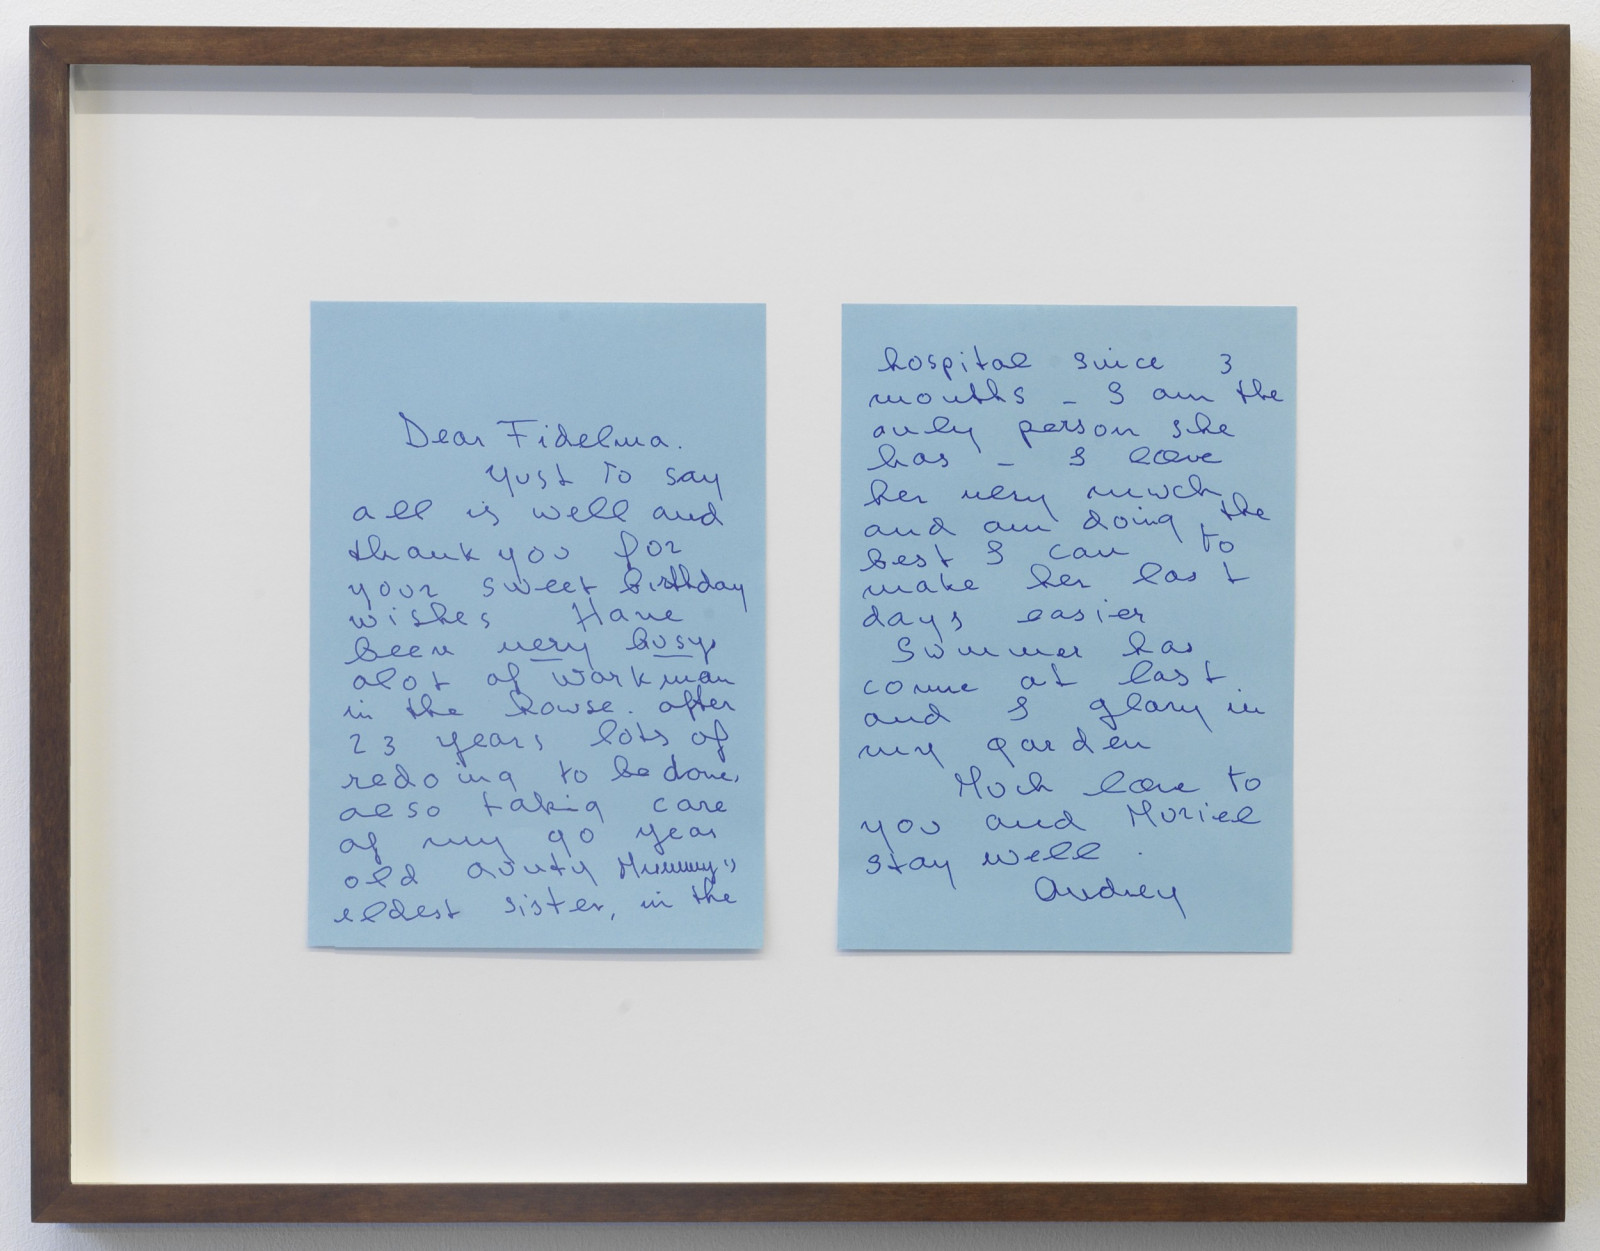 Dear Fidelma.
Yust to say
all is well and
thank you for
your sweet birthday
wishes Have
been very busy,
alot of workman
in the house. after
23 years lots of
redoing to be done,
also taking care
of my 90 year
old aunty Mummy's
eldest sister, in the
hospital since 3
months - I am the
only person she
has - I love
her very much
and am doing the
best I can to
make her last
days easier
Summer has
come at last
and I glory in
my garden
Much love to
you and Muriel
stay well.
Audrey